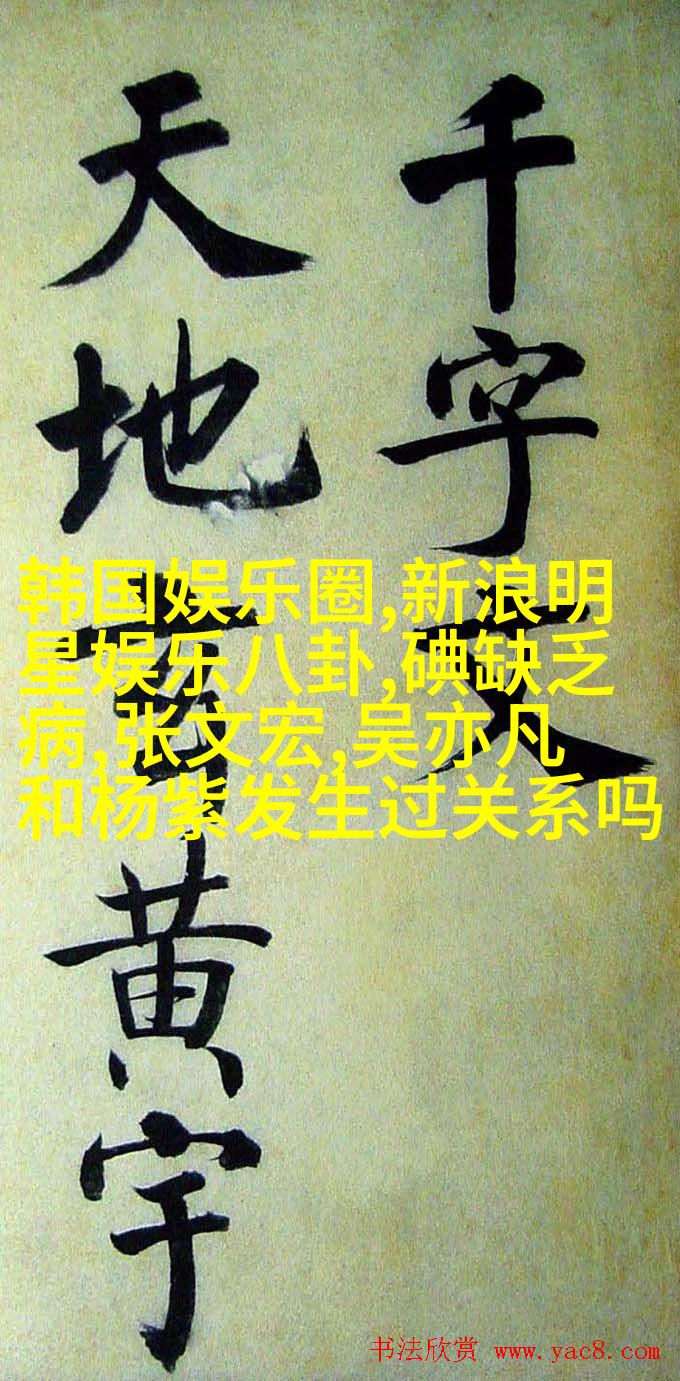 千字文
天地玄黄宇
韩国娱乐圈,新浪明
星娱乐八卦,碘缺乏
病,张文宏,吴亦凡
和杨紫发生过关系吗
书法欣赏 www.yac8.com